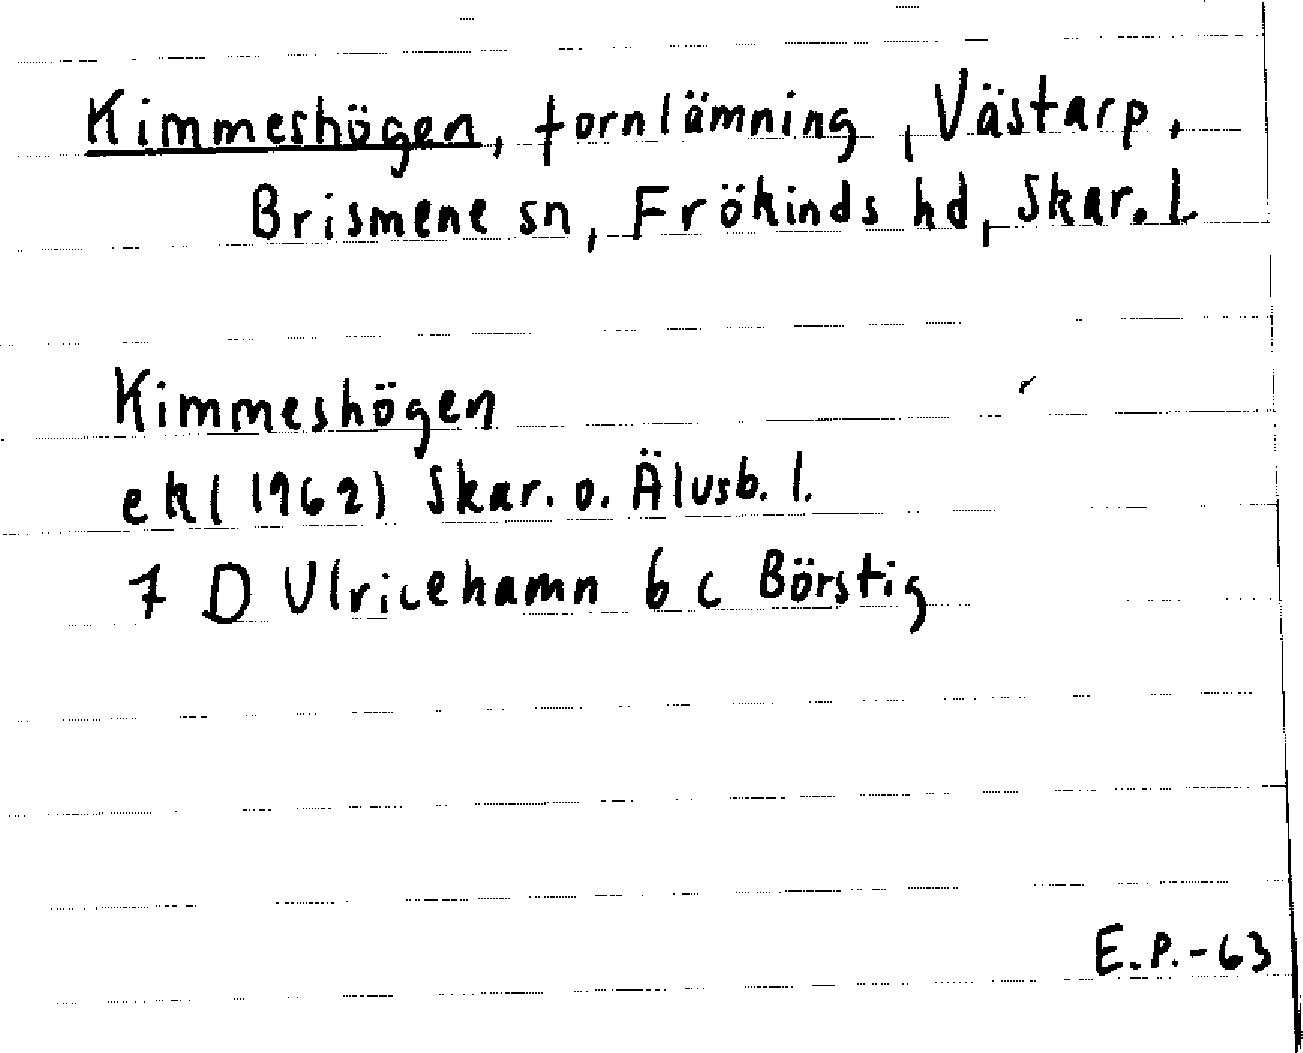 Kimmeshögen, fornlämning, Västarp,
Brismene sn, Frökinds hd, Skar. l
Kimmeshögen
ek (1962) Skar. o. Älvsb. l.
7 D Ulricehamn 6 c Börstig
E.P.-63